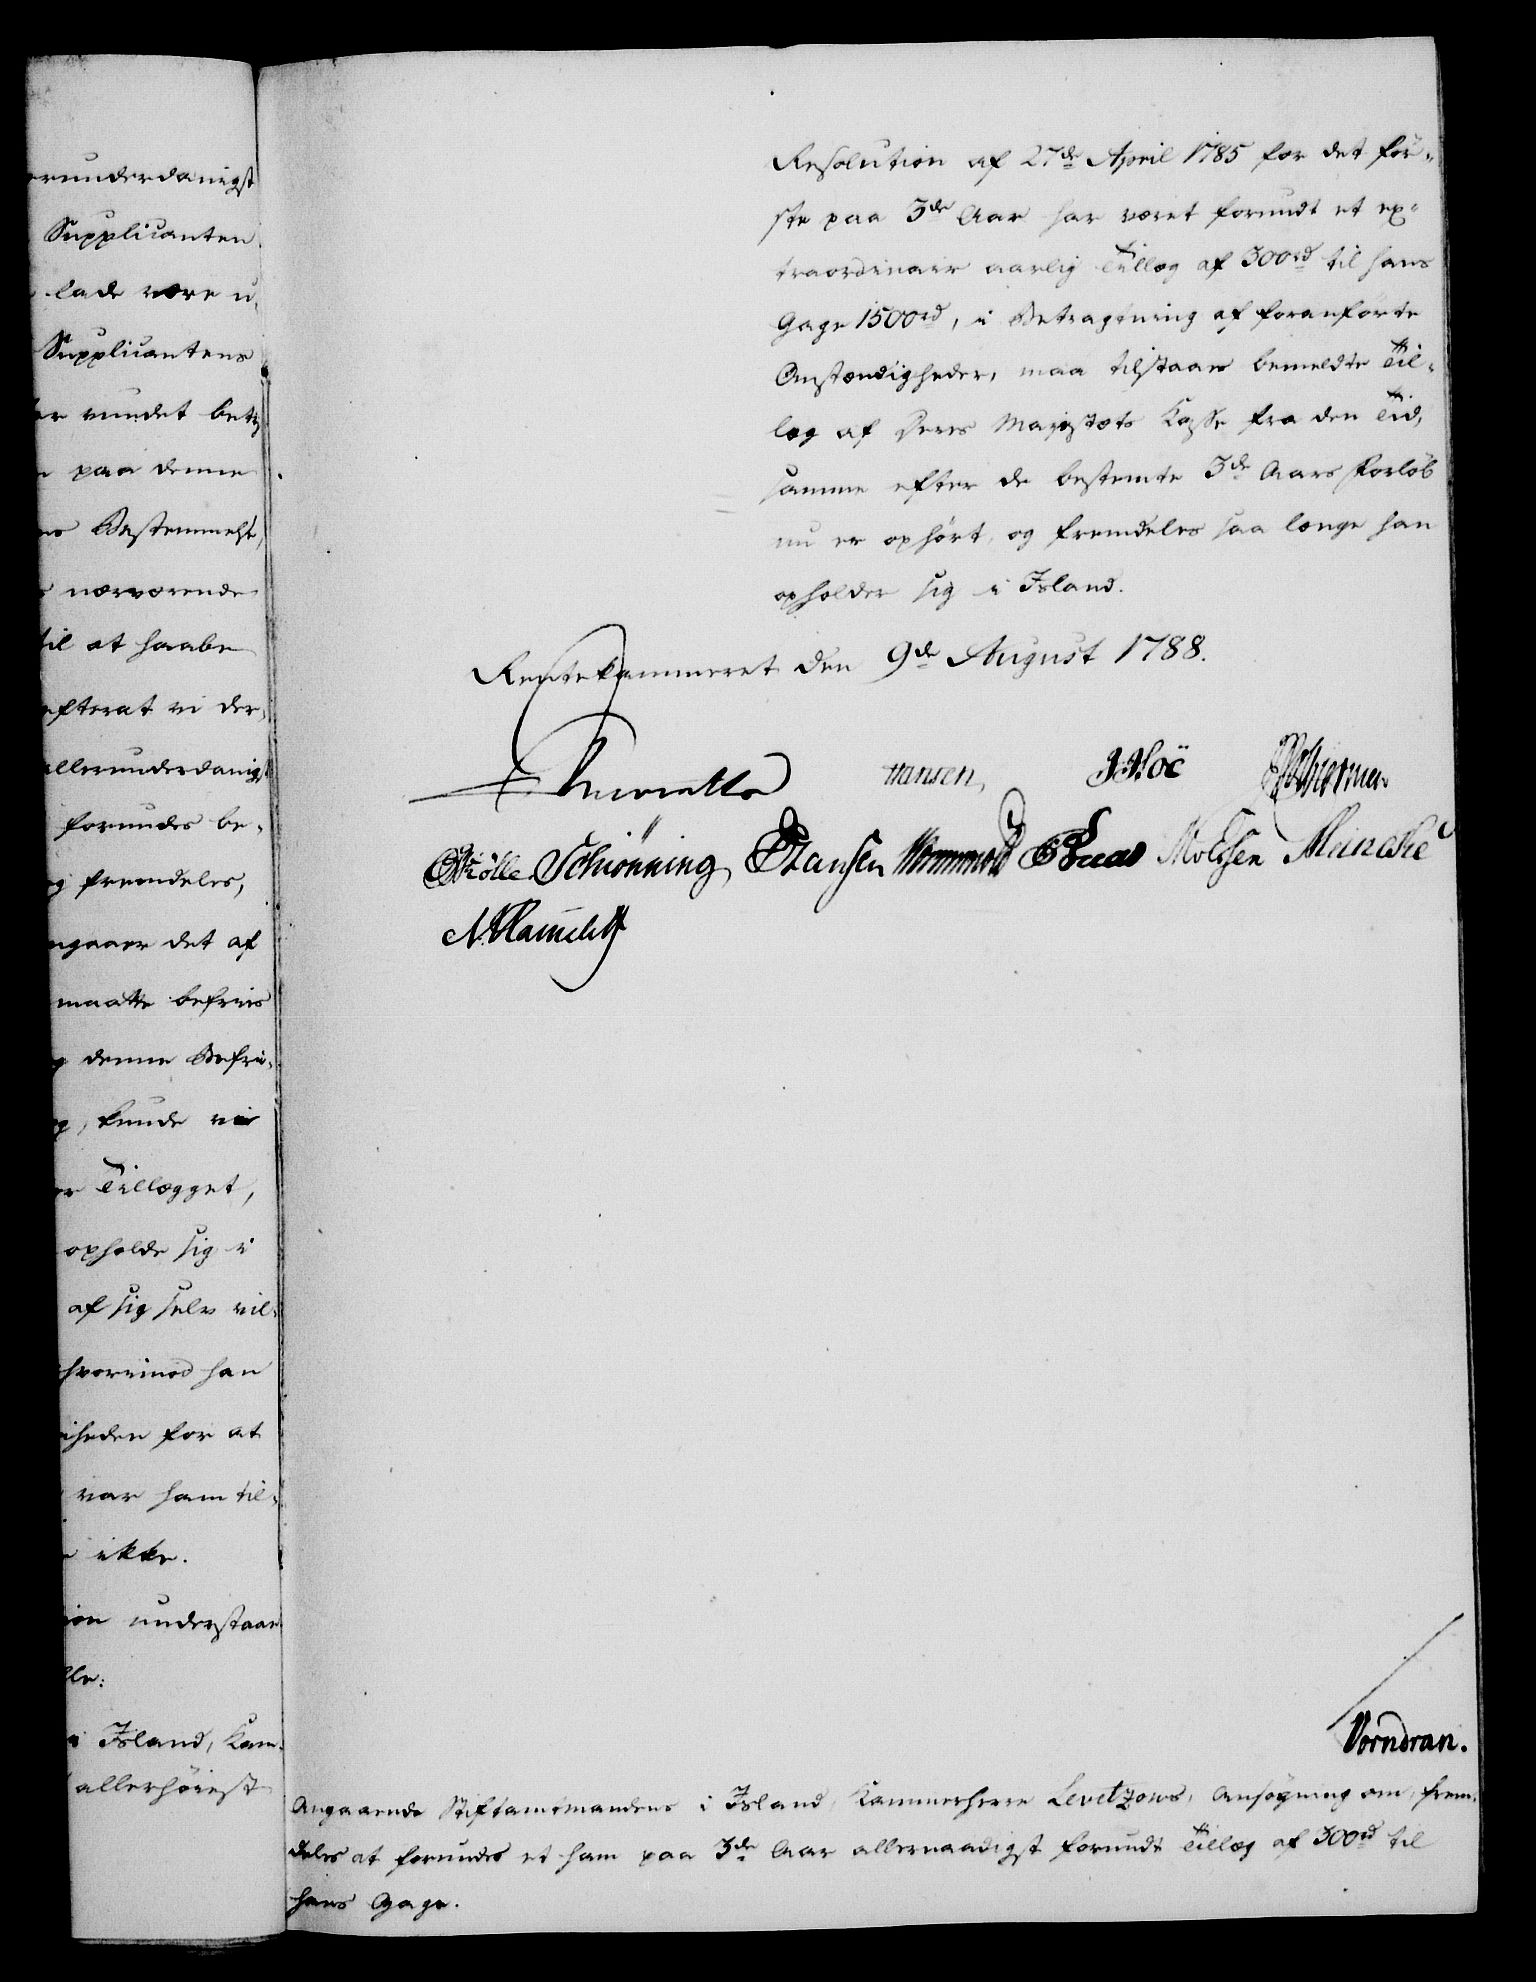 erunderdanigst
Supplicanten
lade være u-
Supplicantens
vundet bety
paa denne
Bestemmelse,
nærværende
til at haabe
efterat vi der-
allerunderdanigst
forundes be-
fremdeles,
angaaer det af
maatte befries
denne Befri-
kunde vi
Tillægget,
opholde sig i
af sig selv vil-
hvorimod han
heden for at
var ham til-
ikke.
understaae
lle:
i Island, Kam-
allerhöiest
Resolution af 27de April 1785 for det för-
ste paa 3de Aar har været forundt et ex-
traordinair aarlig Tillæg af 300rd til hans
Gage 1500rd, i Betragtning af foranförte
Omstændigheder, maa tilstaaes bemeldte Til-
læg af Deres Majestæts Kasse fra den Tid,
samme efter de bestemte 3de Aars Forlöb
nu er ophört, og fremdeles saa længe han
opholder sig i Island.
Rentekammeret den 9de August 1788.
Hansen,
Schiönning, Hansen Wormskiold Meincke
Vorndran.
Angaaende Stiftamtmandens i Island, Kammerherre Levetzows, Ansögning om, frem-
deles at forundes et ham paa 3de Aar allernaadigst forundt Tillæg af 300rd til
hans Gage.